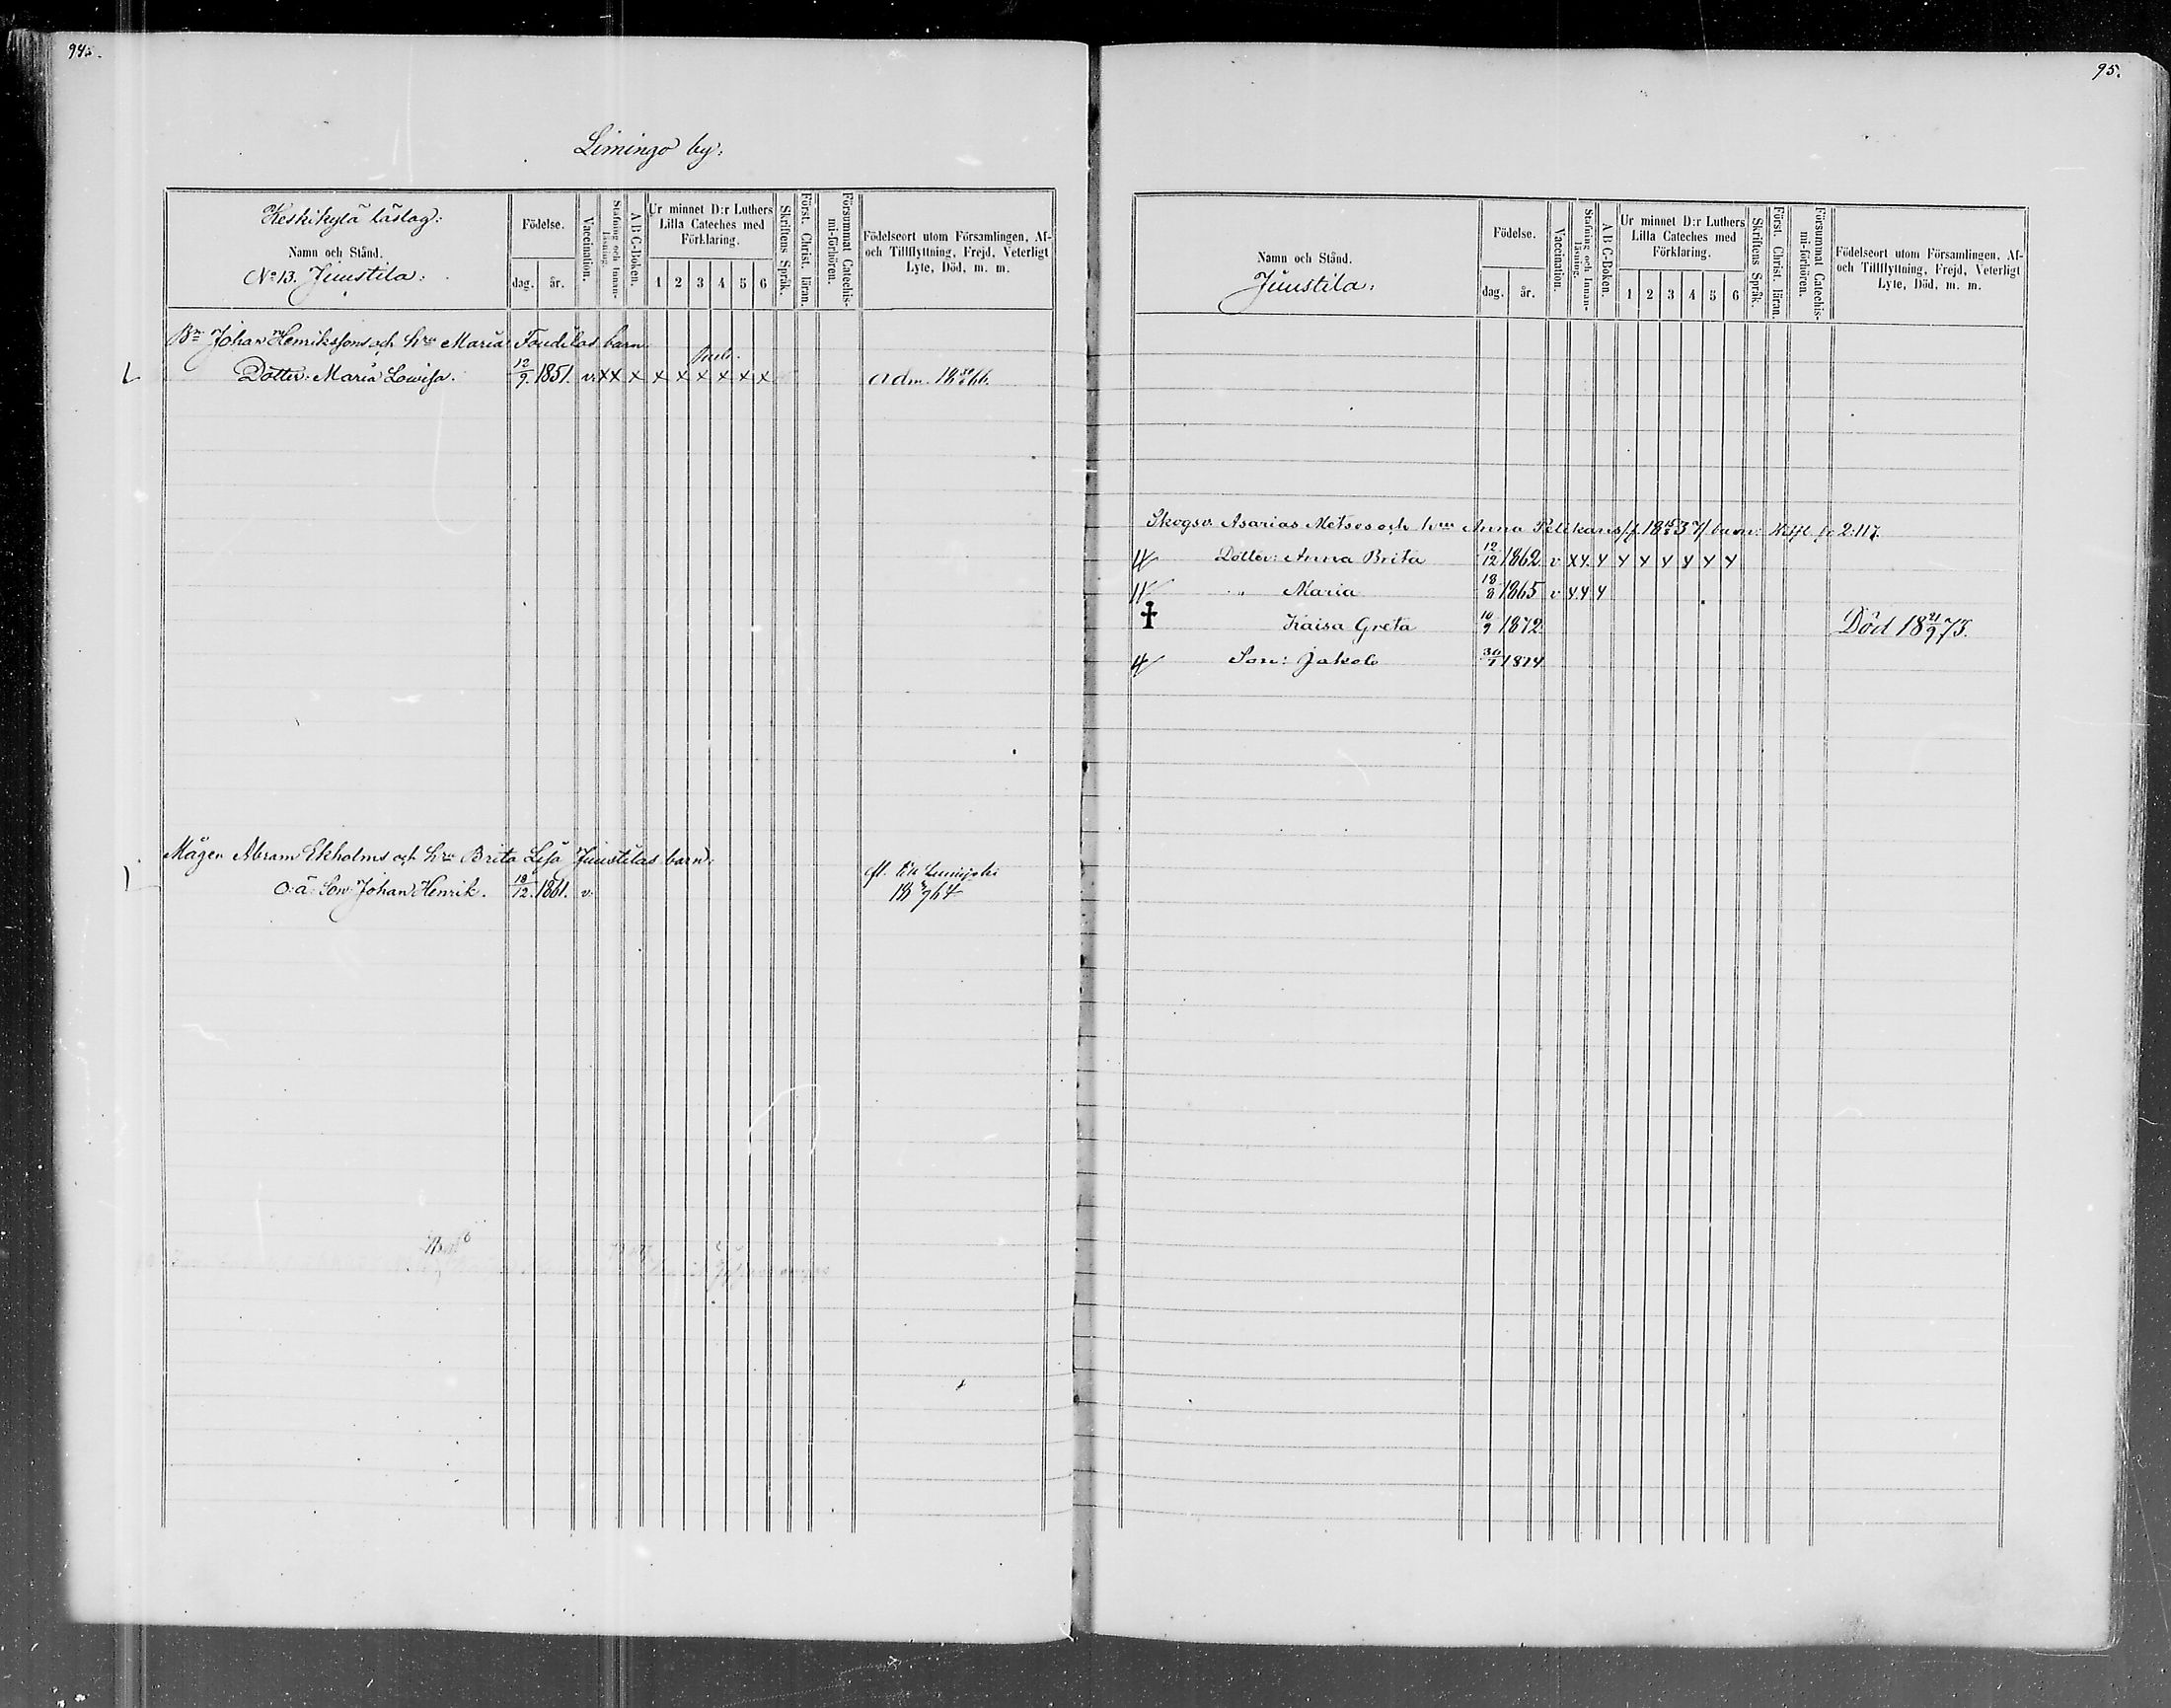 94.
Limingo by:
Keskikylä läslag:
Namn och Stånd.
No 13. Juustila:
Födelse.
dag. år.
Vaccination.
Stafning och Innan-
läsning.
A B C-Boken.
Ur minnet D:r Luthers
Lilla Cateches med
Förklaring.
1 2 3 4 5 6
Skriftens Språk.
Först. Christ. läran.
Försummat Catechis-
mi-förhören.
Födelseort utom Församlingen, Af-
och Tillflyttning, Frejd, Veterligt
Lyte, Död, m. m.
Bn Johan Henrikssons och hru Maria barn
Dotter: Maria Lovisa. 12/9. 1851. v. xx x x x x x x x adm. 18 66.
Mågen Abram Ekholms och hru Brita Lisa Juustilas barn:
o: ä: Son: Johan Henrik. 18/12. 1861. v. fl. till Lumijoki
18 64
95.
Namn och Stånd.
Juustila:
Födelse.
dag. år.
Vaccination.
Stafning och Innan-
läsning.
A B C-Boken.
Ur minnet D:r Luthers
Lilla Cateches med
Förklaring.
1 2 3 4 5 6
Skriftens Språk.
Först. Christ. läran.
Försummat Catechis-
mi-förhören.
Födelseort utom Församlingen, Af-
och Tillflyttning, Frejd, Veterligt
Lyte, Död, m. m.
Skogsv. Asarias Metsos och hrus Anna Pelikans barn: 2:117.
Dotter: Anna Brita 12/12 1862 v x x x x x x x x x
" Maria 18/8 1865 v x x x
† Kaisa Greta 10/9 1872. Död 18 21/9 73.
Son: Jakob 30/1 1874